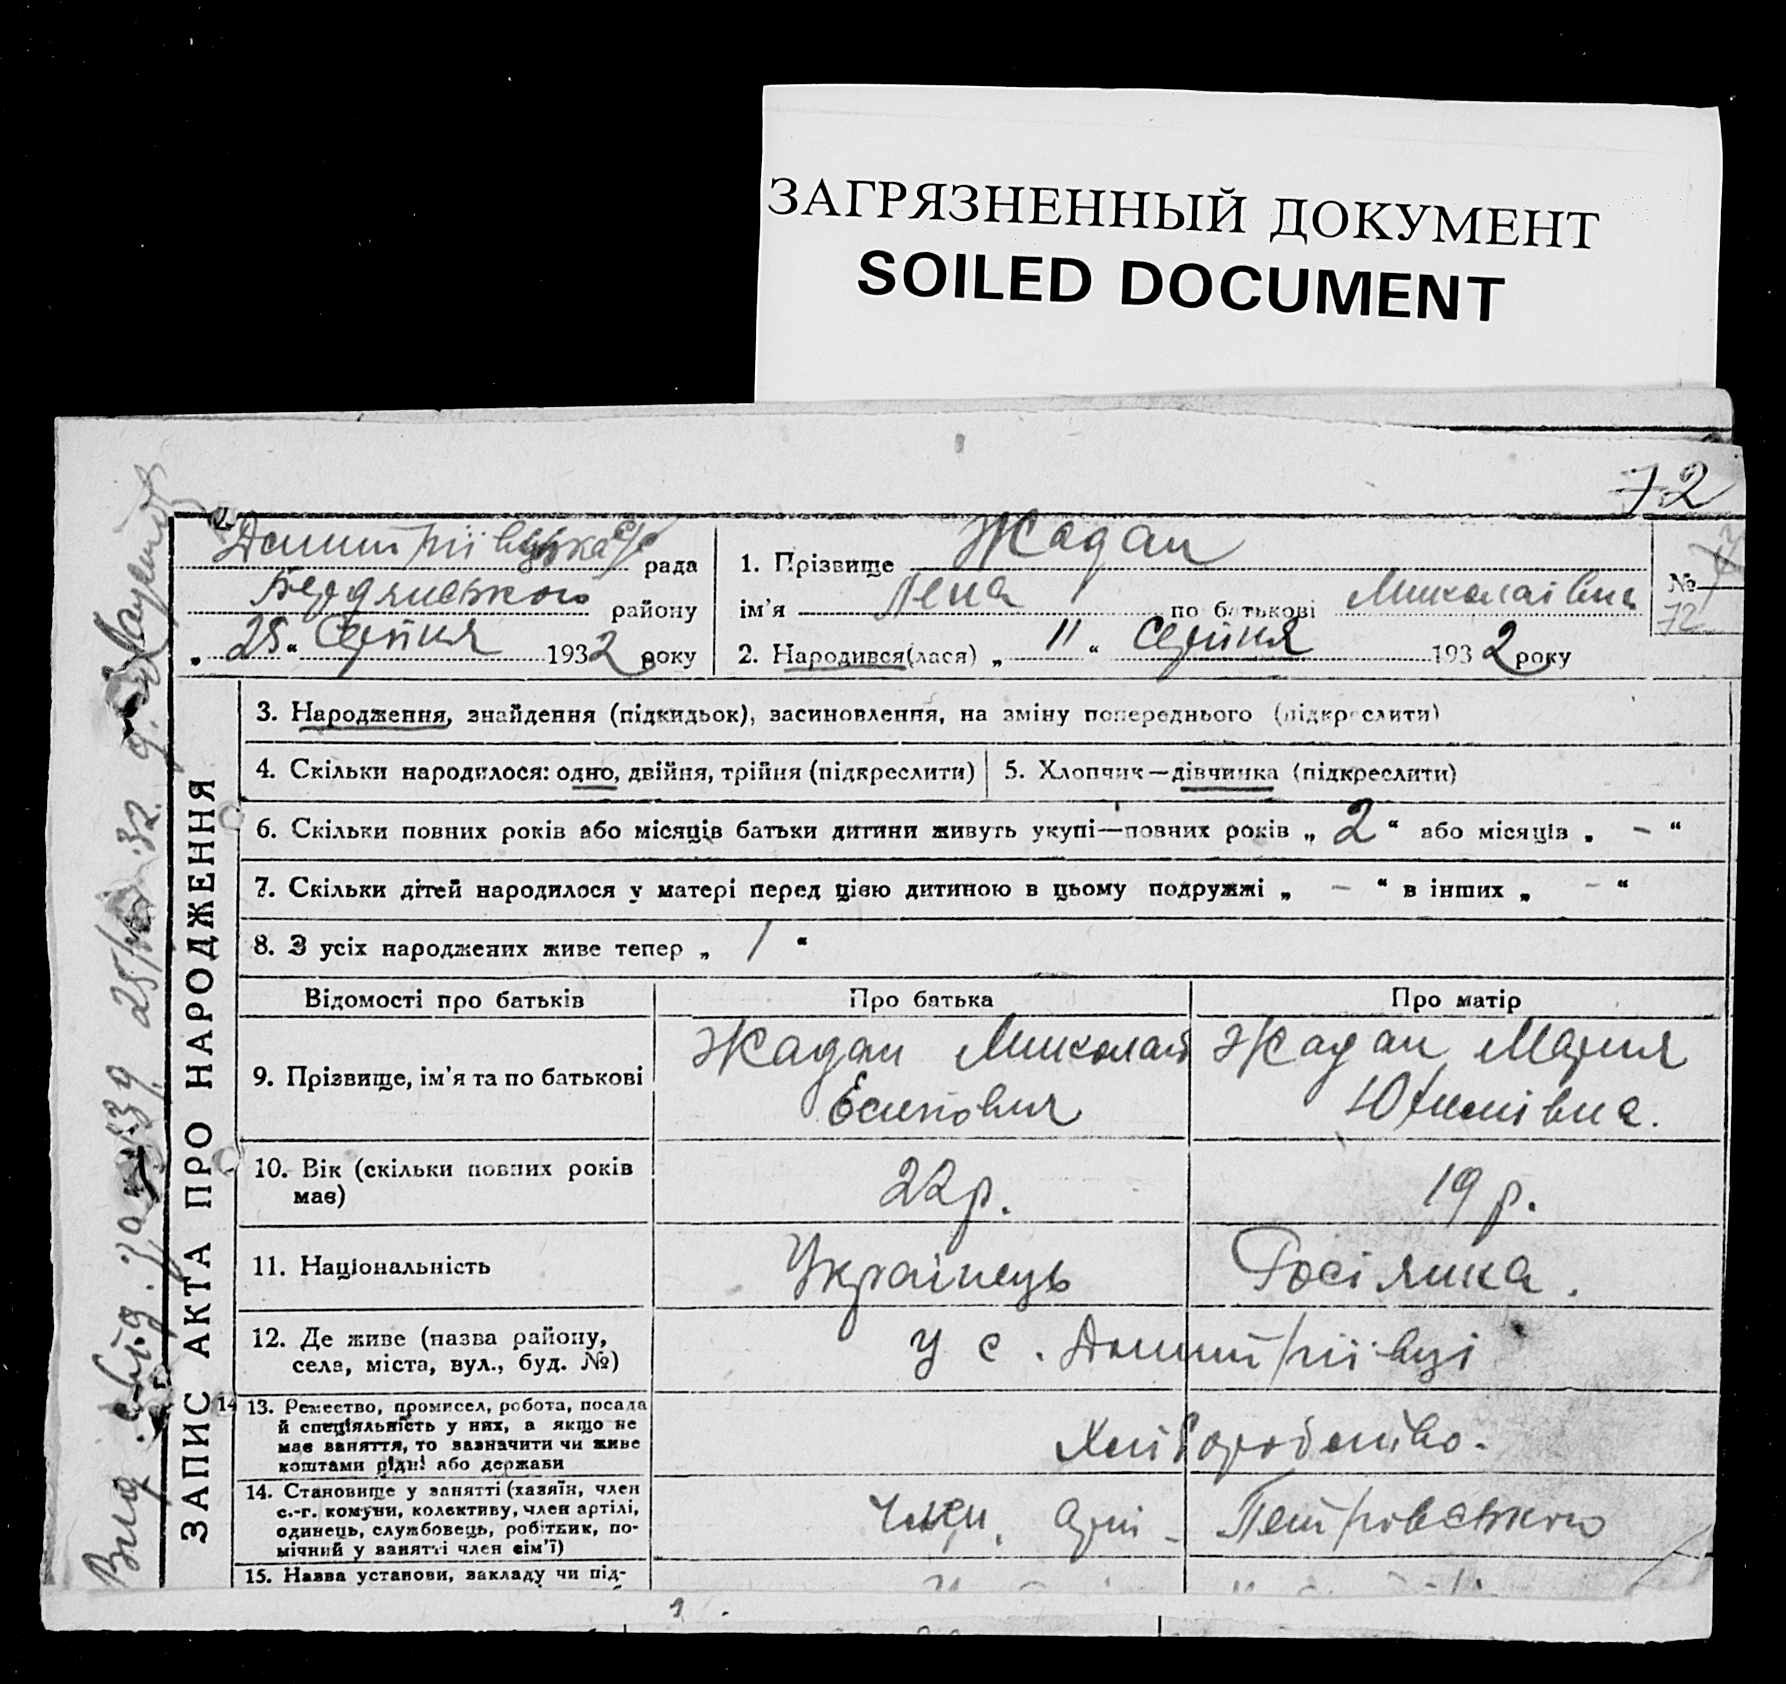 ЗАГРЯЗНЕННЫЙ ДОКУМЕНТ
SOILED DOCUMENT
72
Дмитріївська с/р рада
Бердянського району
„25“ Серпня 1932 року
1. Прізвище Жадан
ім'я Лена по батькові Миколаівна
2. Народився(лася) „11“ Серпня 1932 року
№
72
ЗАПИС АКТА ПРО НАРОДЖЕННЯ
3. Народження, знайдення (підкидьок), засиновлення, на зміну попереднього (підкреслити)
4. Скільки народилося: одно, двійня, трійня (підкреслити)
5. Хлопчик—дівчинка (підкреслити)
6. Скільки повних років або місяців батьки дитини живуть укупі—повних років „2“ або місяців „-“
7. Скільки дітей народилося у матері перед цією дитиною в цьому подружжі „-“ в інших „-“
8. З усіх народжених живе тепер „1“
Відомості про батьків Про батька Про матір
9. Прізвище, ім'я та по батькові
Жадан Миколай
Есипович
Жадан Мария
Юхимівна.
10. Вік (скільки повних років
має)
22 р. 19 р.
11. Національність Українець Росіянка.
12. Де живе (назва району,
села, міста, вул., буд. №)
У с. Дмитріївці
14
13. Ремество, промисел, робота, посада
й спеціяльність у них, а якщо не
має заняття, то зазначити чи живе
коштами рідні або держави
Хліборобство.
14. Становище у занятті (хазяїн, член
с.-г. комуни, колективу, член артілі,
одинець, службовець, робітник, по-
мічний у занятті член сім'ї)
Член. арт- Петровського
15. Назва установи, закладу чи під-